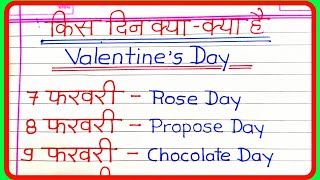 किस दिन क्या-क्या है
Valentine's Day
7 फरवरी - Rose Day
8 फरवरी - Propose Day
9 फरवरी - Chocolate Day